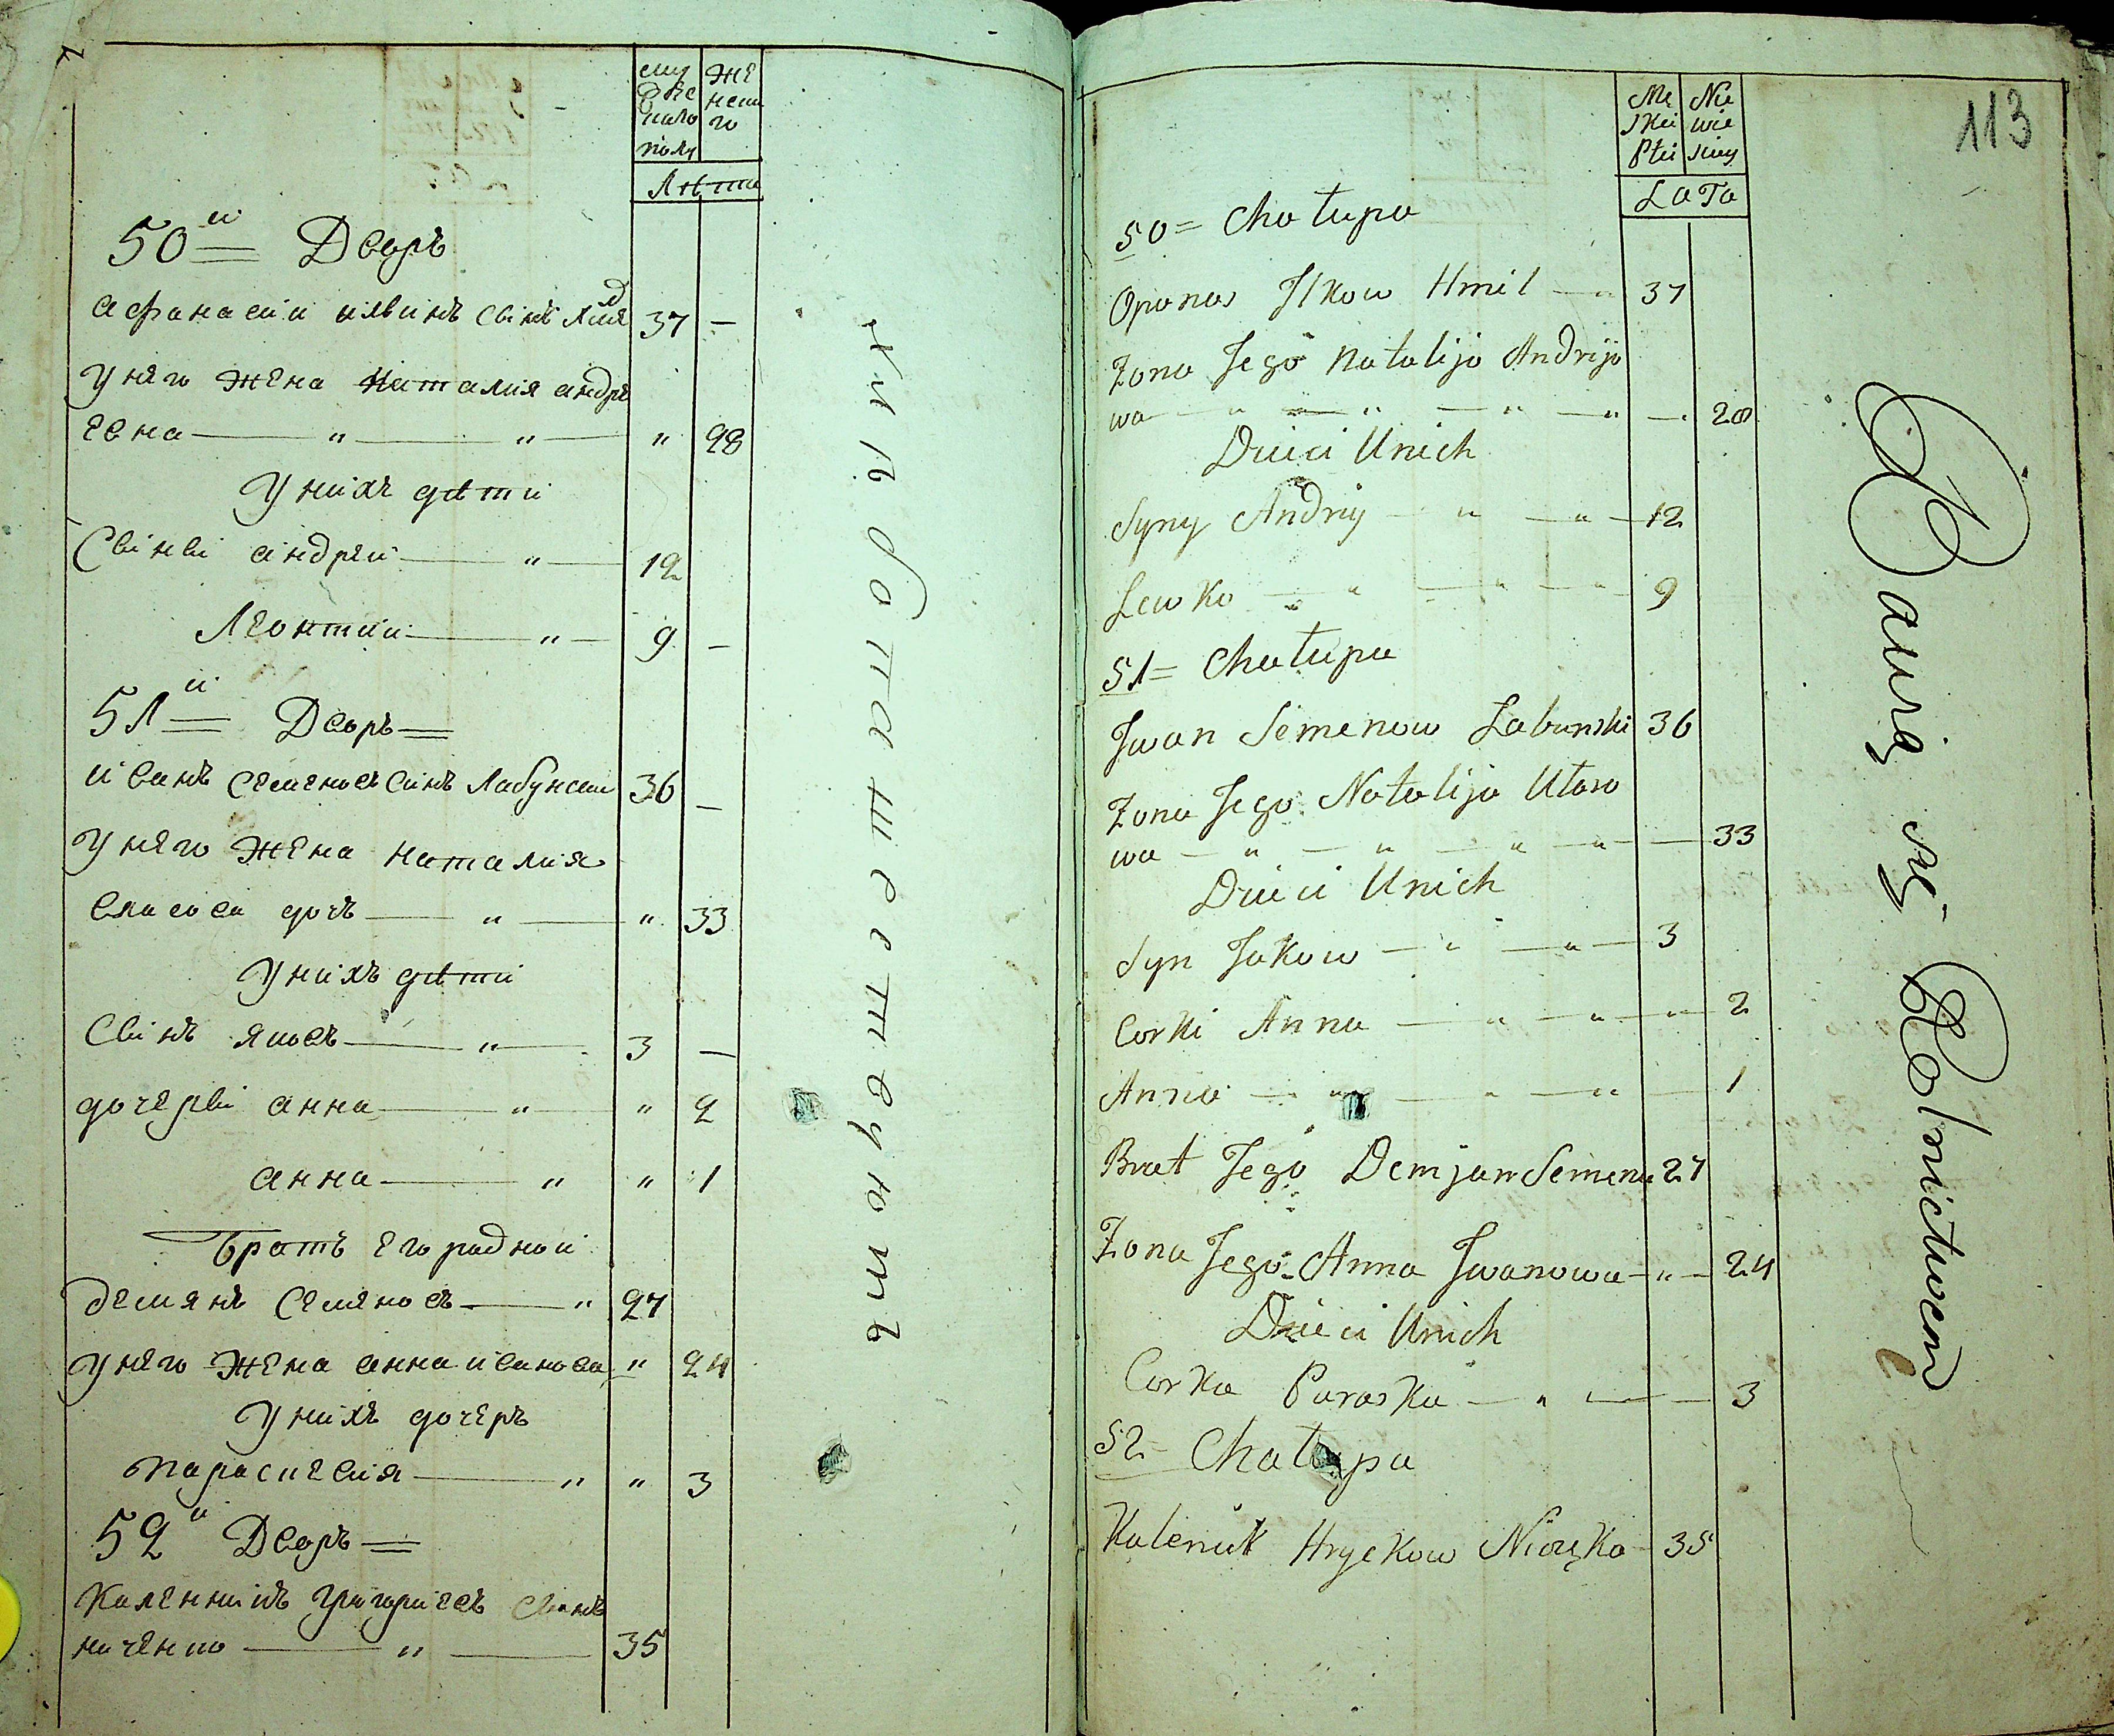 му жеска женска
го
полу
Лѣта
50й Дворъ
Афанасии илвинъ сынъ 37 —
У него жена Наталия андре
евна — " — " — " 28
У нихъ дѣти
Сыны андрей — " — 12
Леонтии — " — 9 —
51й Дворъ
иванъ семеновъ синъ Лабунски 36 —
У него жена наталия
власова дочъ — " — " 33
У нихъ дѣти
Сынъ яковъ — " — 3 —
дочеры анна — " — " 2
анна — " " 1
братъ его родной
демянъ семеновъ — " 27
у него жена анна иванова " 24
У нихъ дочеръ
параскевия — " " 3
52й Дворъ
Каленникъ Григориевъ сынъ
ниченко — " — 35
хлѣбопашествуютъ
113
Mę
skei
Płci
Nie
wie
sciey
LaTa
50 = Chałupa
Opanas Ilkow Hmil — " 37
Zona Jego Natalija Andrijo
wa — " — " — " — " — 28
Dzieci Unich
Syny Andrij — " — " — 12
Lewko — " — " — " 9
51 = Chałupa
Jwan Semenow Labunski 36
Zona Jego Natalija Ułaso
wa — " — " — " — " — 33
Dzieci Unich
Syn Jakow — " — " — 3
Corki Anna — " — " — " — 2
Anna — " — " — " — 1
Brat Jego Demjan Semenow 27
Zona Jego Anna Jwanowa — " — 24
Dzieci Unich
Corka Paraska — " — — 3
52 = Chałupa
Kalenik Hryckow 35
Bawią się Rolnictwem